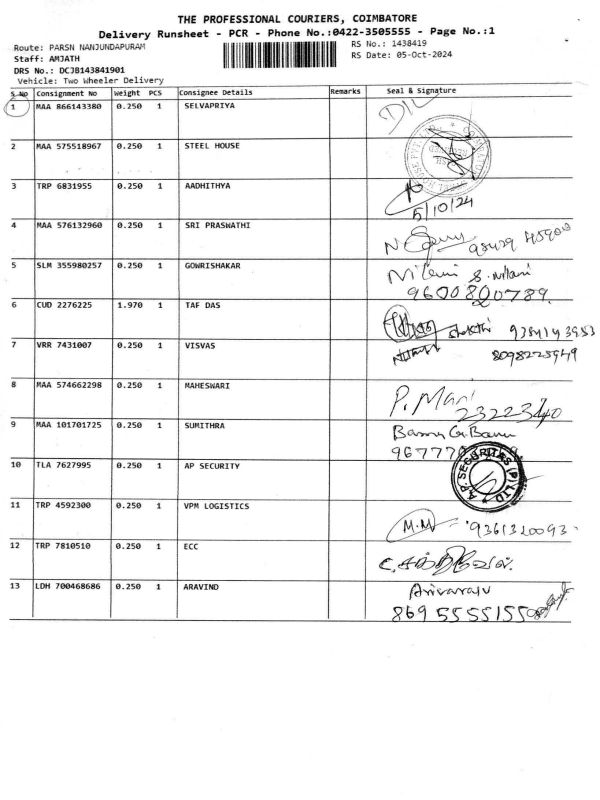 THE PROFESSIONAL COURIERS, COIMBATORE
Delivery Runsheet - PCR - Phone No.:0422-3505555 - Page No.:1
Route: PARSN NANJUNDAPURAM
RS No.: 1438419
Staff: AMJATH
RS Date: 05-Oct-2024
DRS No.: DCJB143841901
Vehicle: Two Wheeler Delivery
S.No Consignment No Weight PCS Consignee Details Remarks Seal & Signature
1 MAA 866143380 0.250 1 SELVAPRIYA
2 MAA 575518967 0.250 1 STEEL HOUSE
3 TRP 6831955 0.250 1 AADHITHYA
5/10/24
4 MAA 576132960 0.250 1 SRI PRASWATHI
5 SLM 355980257 0.250 1 GOWRISHAKAR
9600800789
6 CUD 2276225 1.970 1 TAF DAS
7 VRR 7431007 0.250 1 VISVAS
8098225949
8 MAA 574662298 0.250 1 MAHESWARI P. Mani
2322340
9 MAA 101701725 0.250 1 SUMITHRA
10 TLA 7627995 0.250 1 AP SECURITY A.P. SECURITAS (P) LTD
11 TRP 4592300 0.250 1 VPM LOGISTICS M.M 9361320093
12 TRP 7810510 0.250 1 ECC
13 LDH 700468686 0.250 1 ARAVIND
869 5555155